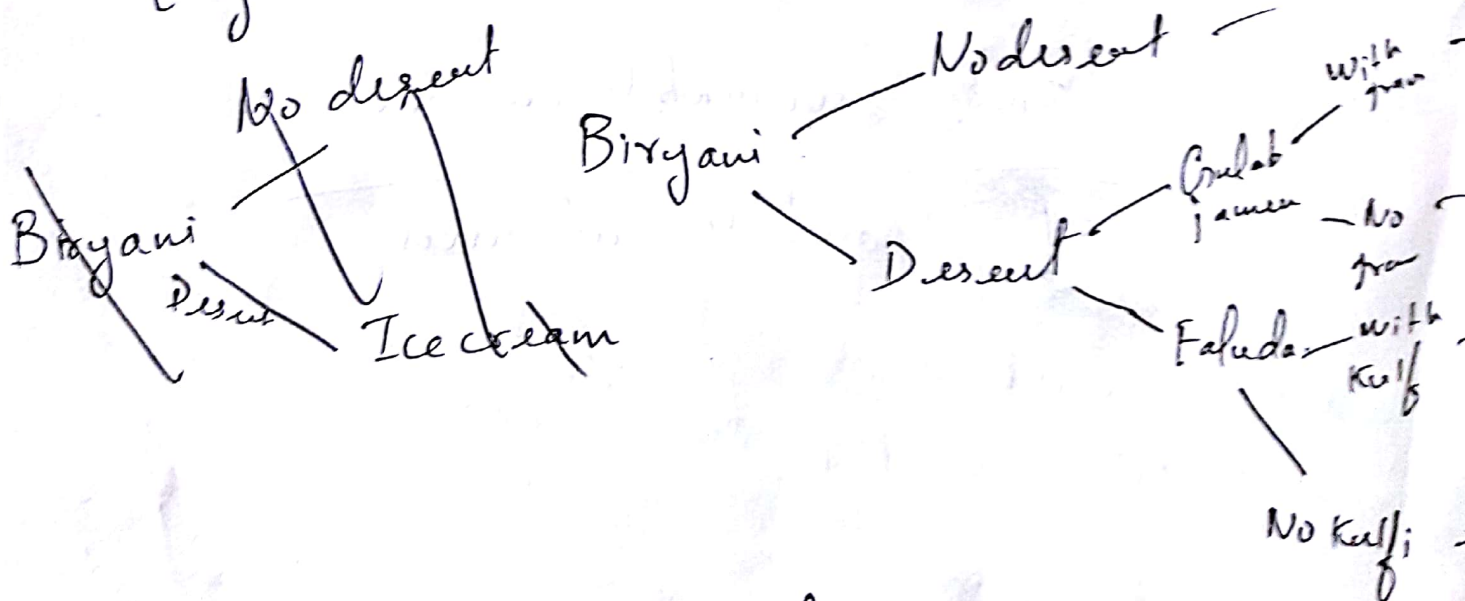 No desent
Biryani
Desent
Ice cream
Biryani
No desent
Desent
Gulab
jamun
With
No
Faluda
With
Kulf
No Kulfi